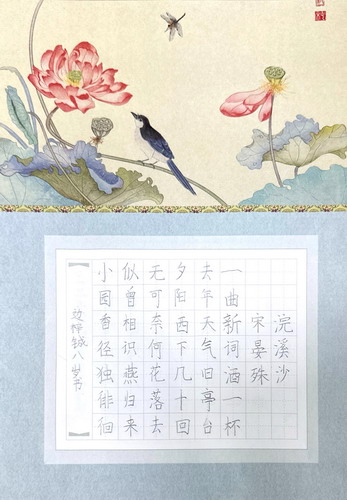 浣溪沙
宋晏殊
一曲新词酒一杯
去年天气旧亭台
夕阳西下几十回
无可奈何花落去
似曾相识燕归来
小园香径独徘徊
八岁书